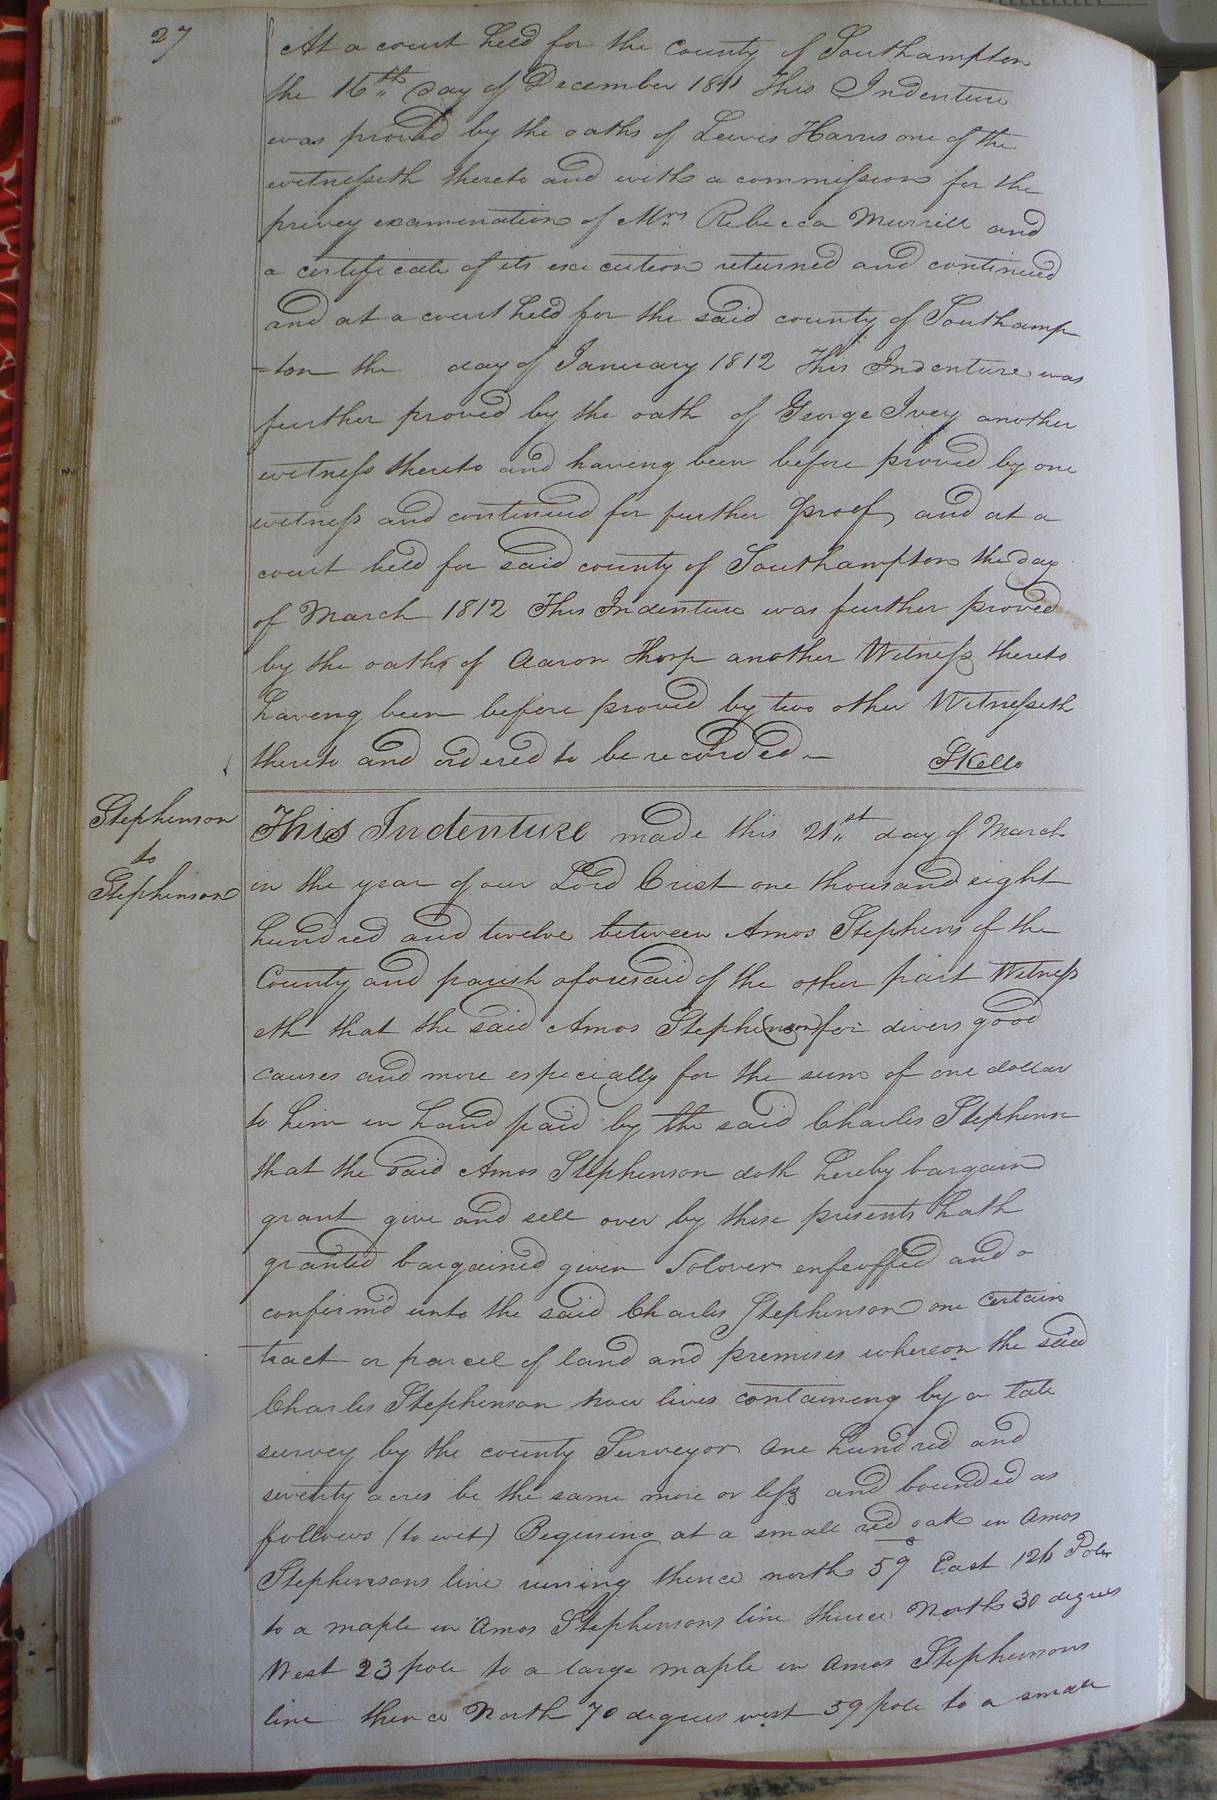 27
At a court held for the county of Southampton
the 16th day of December 1811 This Indenture
was proved by the oaths of Lewis Harris one of the
witnesseth thereto and with a commission for the
privey examination of Mrs Rebecca Murrill and
a certificate of its execution returned and continued
and at a court held for the said county of Southamp
=ton the day of January 1812 This Indenture was
further proved by the oath of George Ivey another
witness thereto and having been before proved by one
witness and continued for further proof, and at a
court held for said county of Southampton the day
of March 1812 This Indenture was further proved
by the oaths of Aaron Thorp another Witness thereto
haveng been before proved by two other Witnesseth
thereto and ordered to be recorded – SKello
Stephenson
to
Stephenson
This Indenture made this 21st day of March
in the year of our Lord Crist one thousand eight
hundred and twelve between Amos Stephens of the
County and parish aforesaid of the other part Witness
eth that the said Amos Stephenson for divers good
causes and more especially for the sum of one dollar
to him in hand paid by the said Charles Stephenson
that the said Amos Stephenson doth hereby bargain
grant give and sell over by these presents hath
granted bargained given Solover enfeoffed and
confirm'd unto the said Charles Stephenson one certain
tract or parcel of land and premises whereon the said
Charles Stephenson now lives containing by a late
survey by the county Surveyor one hundred and
seventy acres be the same more or less and bounded as
follows (to wit) Begining at a small red oak in Amos
Stephensons line runing thence north 59 East 126 Poles
to a maple in Amos Stephensons line thence North 30 degrees
West 23 pole to a large maple in Amos Stephensons
line thence North 70 degrees west 59 pole to a small